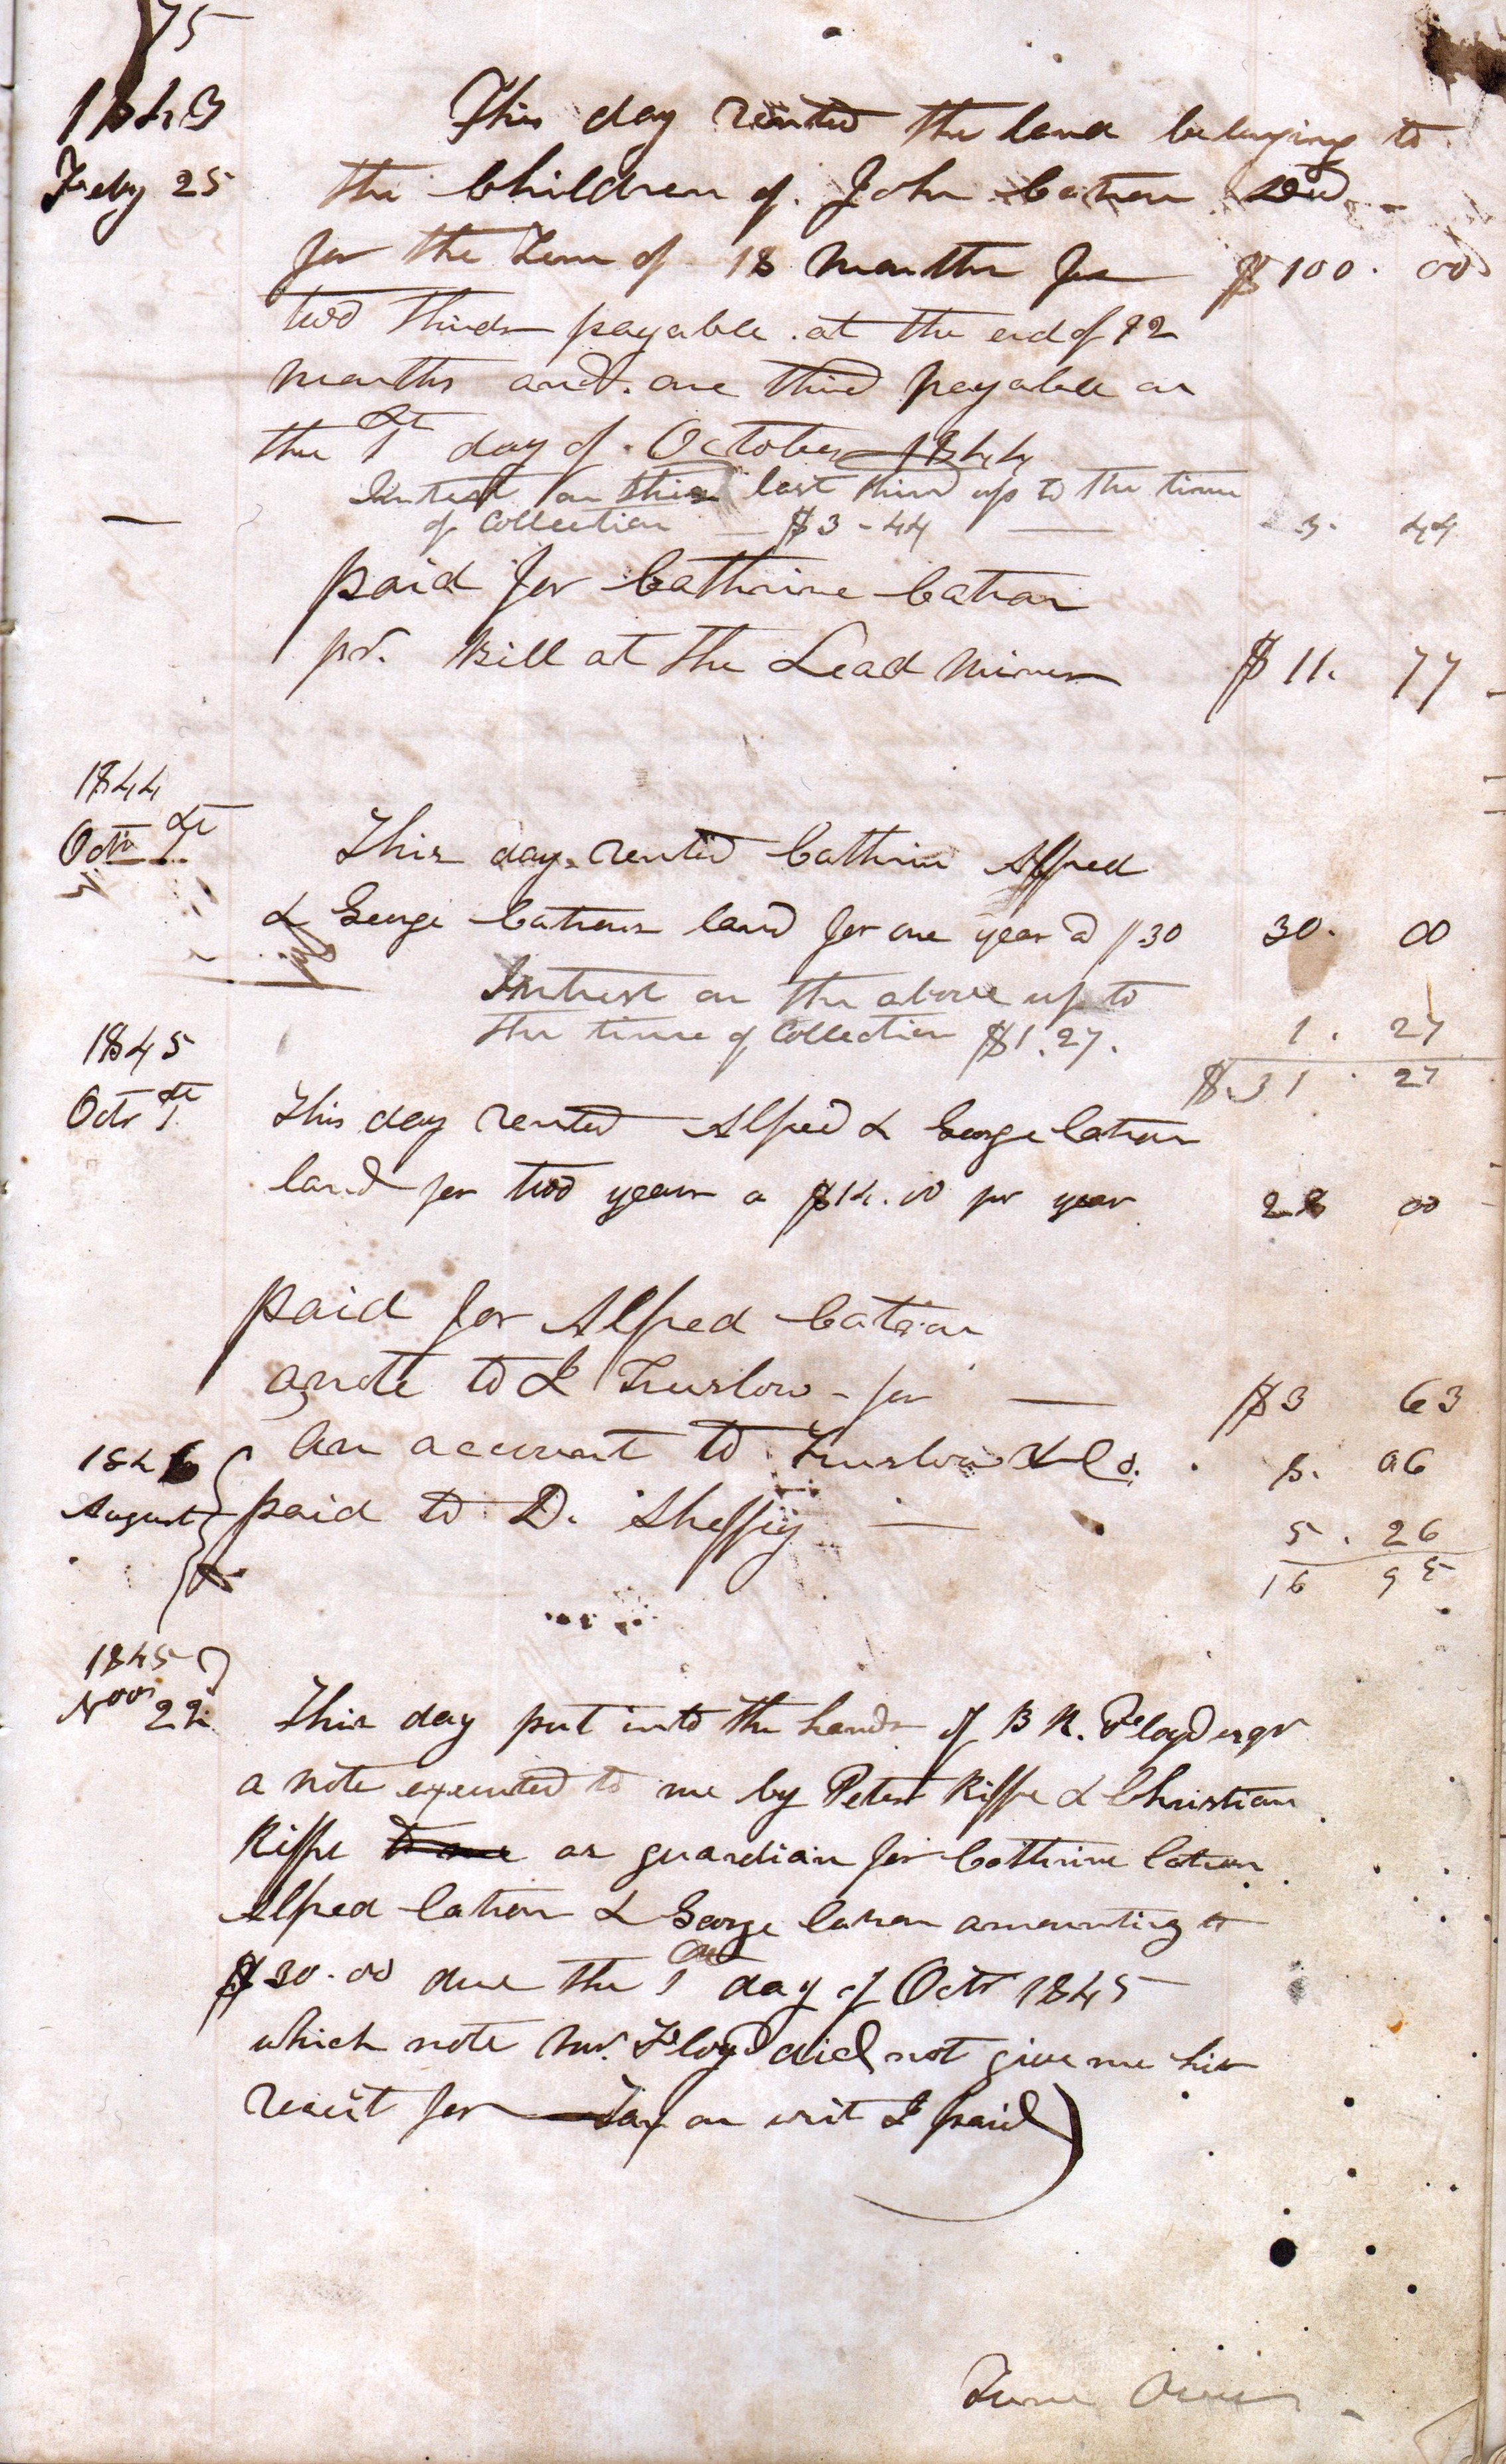 75
1843
Feby 25
This day rented the land belonging to
the Children of John Catron Decd
for the Term of 18 months for $100. 00
two thirds payable at the end of 12
months and one third payable on
the 1st day of October 1844
Intrest on this last third up to the time
of Collection $3-44 3. 44
paid for Cathrine Catron
pr. Bill at the Lead mines $11. 77
1844
Octr 1st
This day rented Cathrin Alfred
& George Catrons land for one year a $30 30. 00
Intrest on the above up to
the time of Collection $1.27. 1. 27
$.31 . 27
1845
Octr 1st
This day rented Alfred & George Catron
land for two years a $14.00 pr year 28 00
paid for Alfred Catron
a note to J Truslow - for $3 63
an account to Truslow & Co. 8. 06
1846
August
paid to D. Sheffey 5 . 26
16 95
1845
Novr 22
This day put into the hands of B R. Floyd esqr
a note executed to me by Peter Kiffe & Christian
Kiffe to me as guardian for Cathrine Catron
Alfred Catron & George Catron amounting to
$30.00 due the 1 day of Octr 1845
which note Mr. Floyd did not give me his
reciet for Tax on writ I paid)
Turn Over